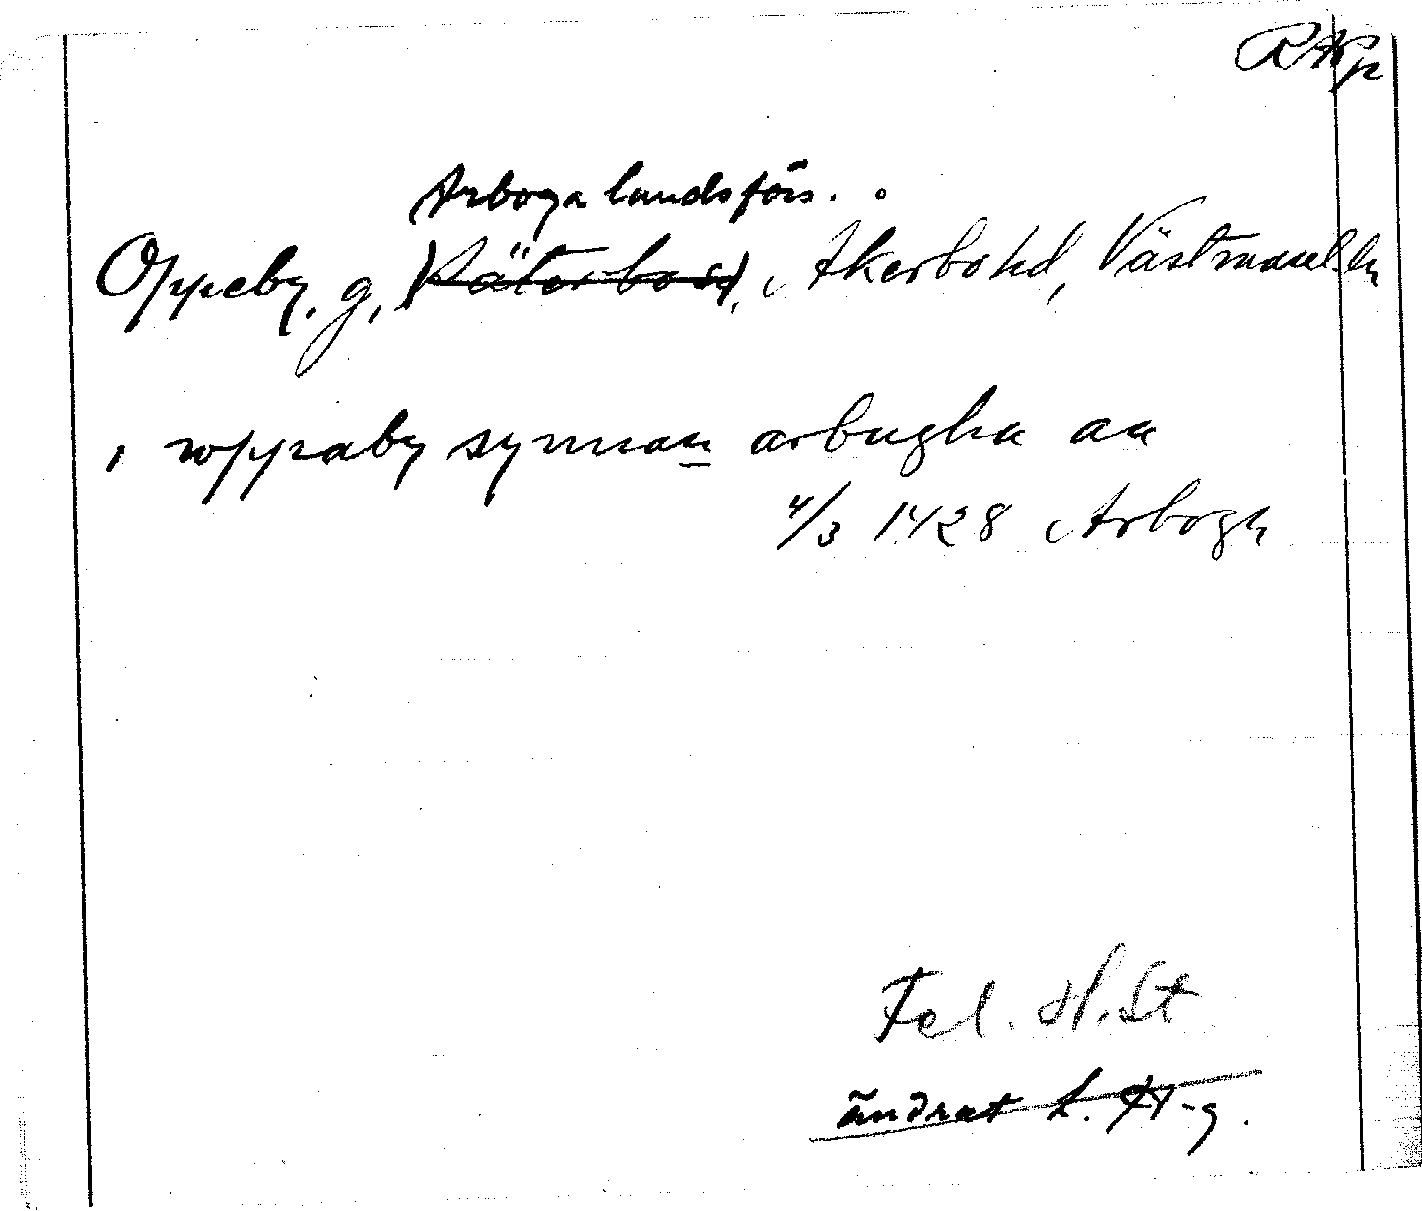 RAp
Arboga landsförs.
Oppeby, g, (Säterbo s), Åkerbo hd, Västmanl. län
i wppaby synnan arbugha aa
4/3 1428 Arboga
Fel. H. St
ändrat L. H-g.